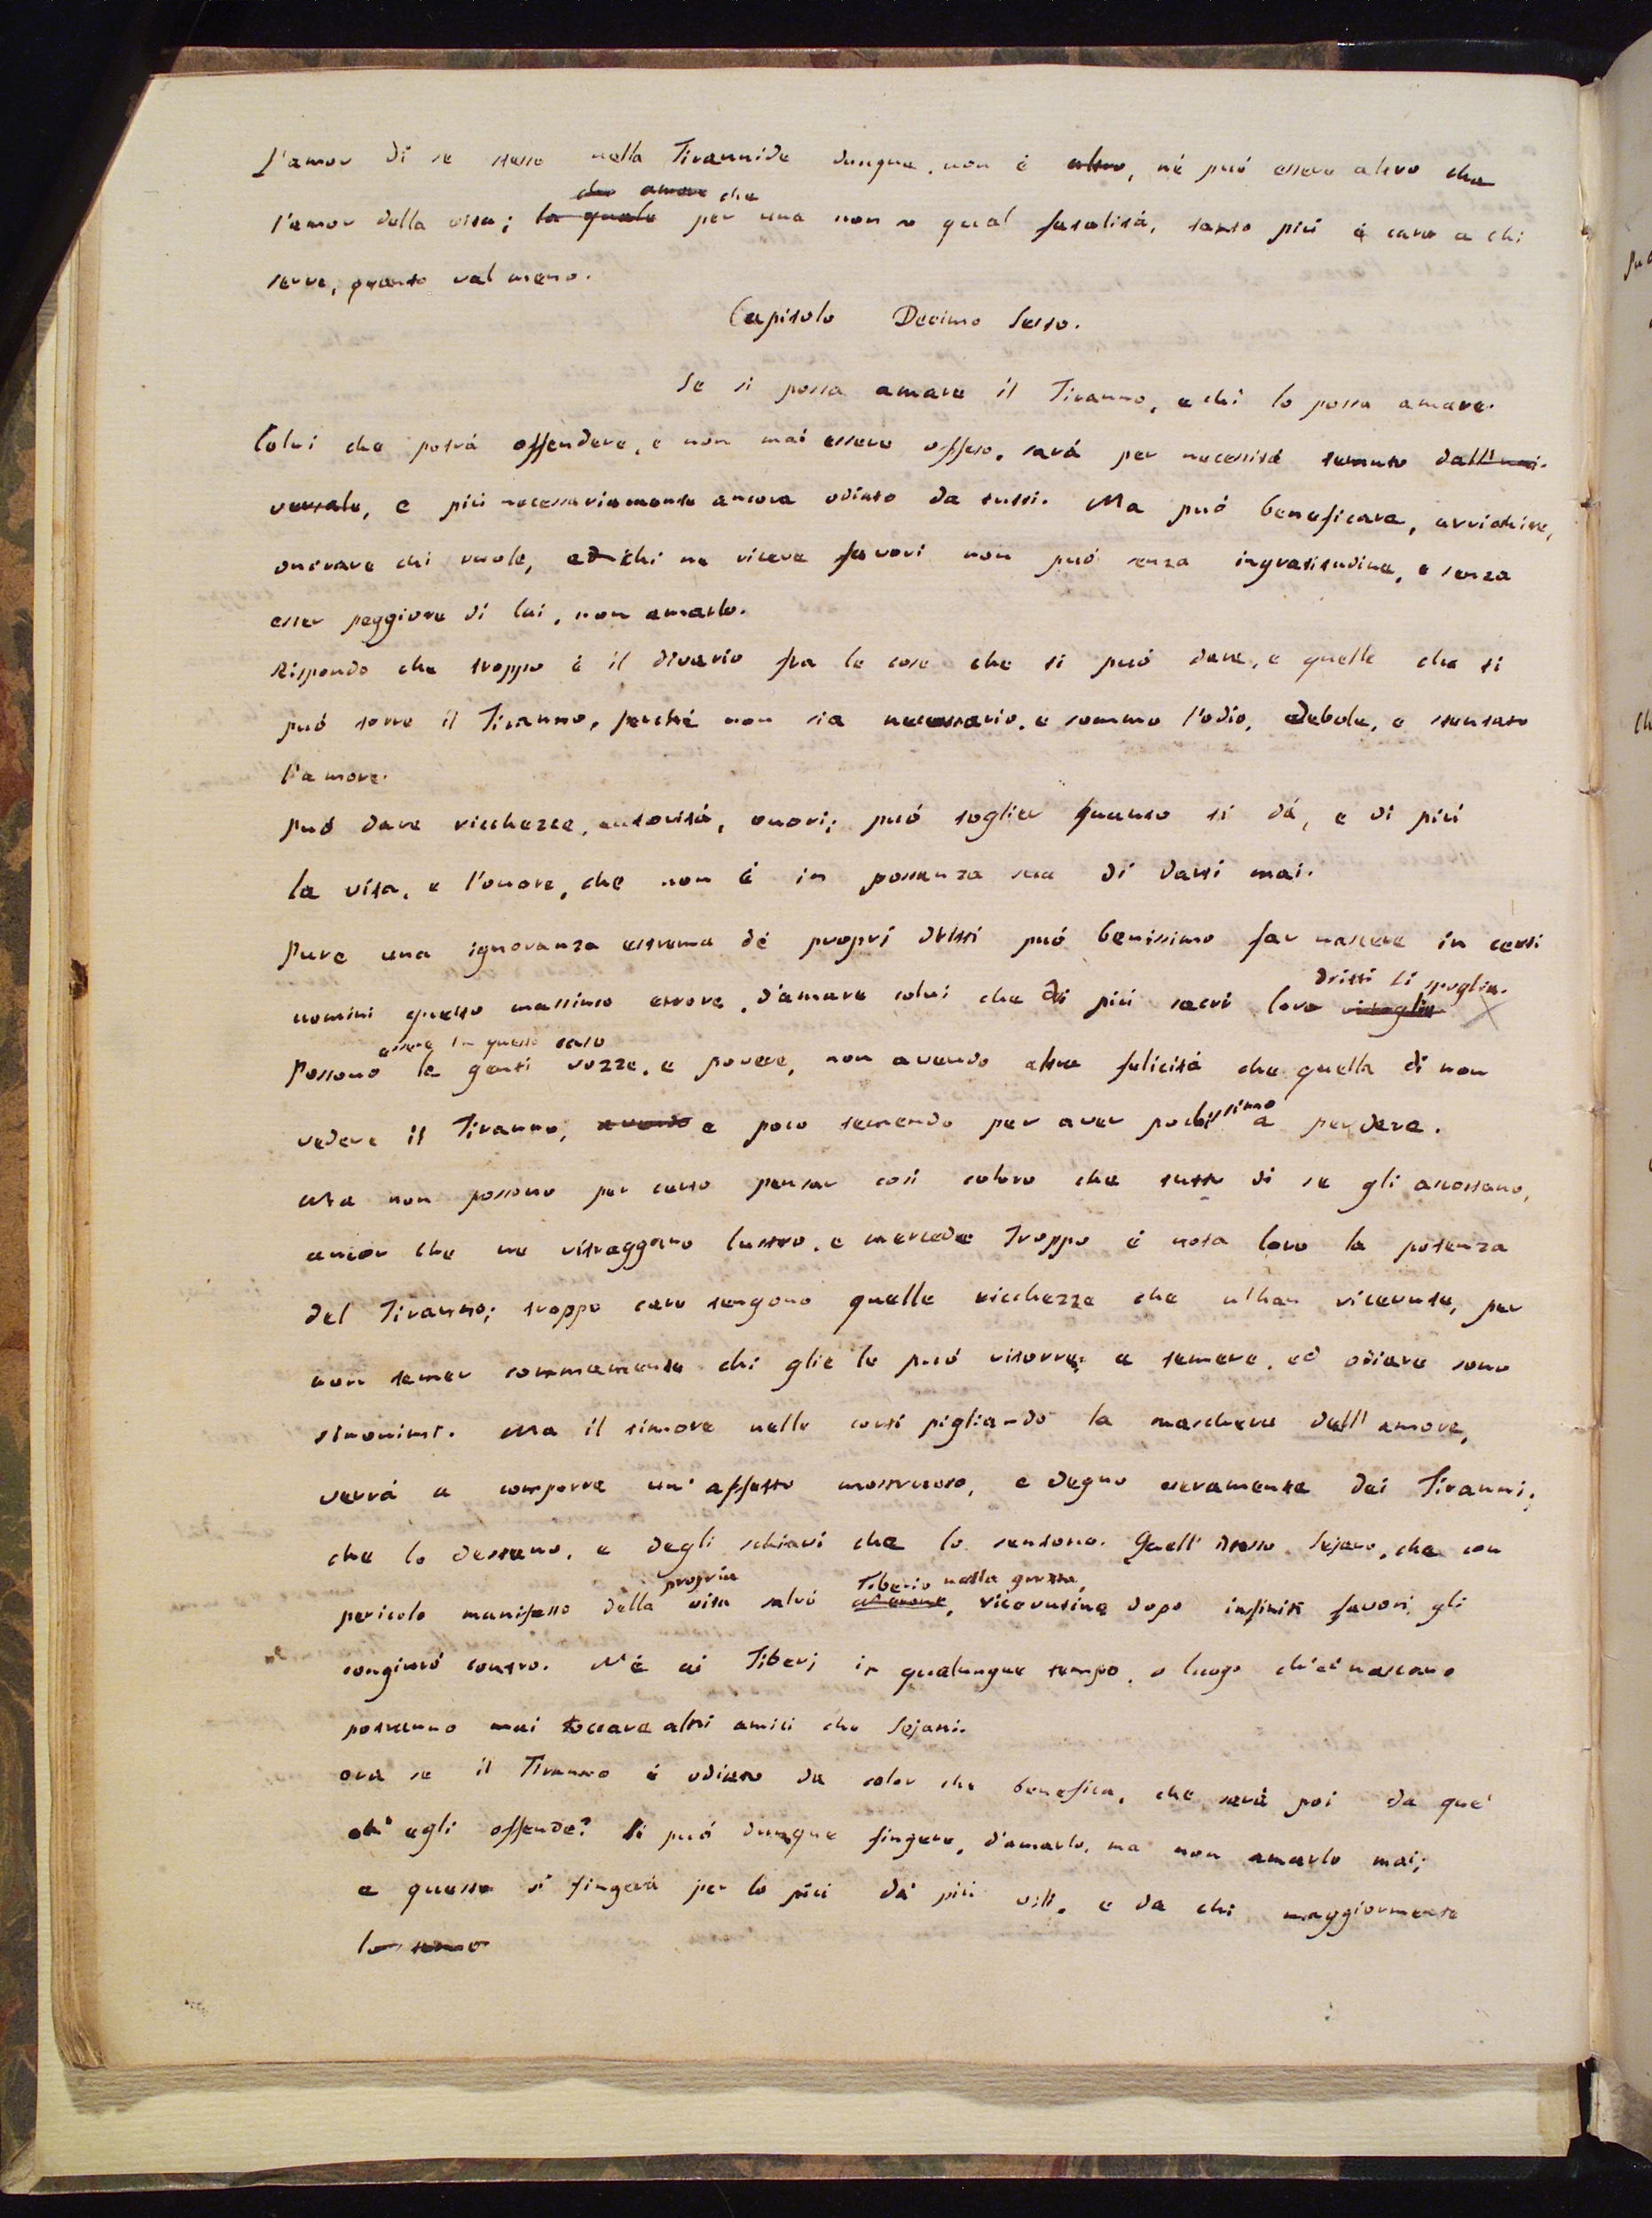 L'amor di se stesso nella Tirannide dunque, non è altro, nè può essere altro che
che amore che
l'amor della vita; la quale per una non so qual fatalità, tanto più è caro a chi
serve, quanto val meno.
Capitolo Decimo Sesto.
Se si possa amare il Tiranno, e chi lo possa amare.
Colui che potrà offendere, e non mai essere offeso, sarà per necessità temuto dall'uni-
versale, e più necessariamente ancora odiato da tutti. Ma può beneficare, arrichire,
onorare chi vuole, ed chi ne riceve favori non può senza ingratitudine, e senza
esser peggiore di lui, non amarlo.
Rispondo che troppo è il divario fra le cose che si può dare, e quelle che si
può torre il Tiranno, perchè non sia necessario, e sommo l'odio, debole, e stentato
l'amore.
può dare ricchezze, autorità, onori; può toglier quanto si dà, e di più
la vita, e l'onore, che non è in possanza sua di darsi mai.
Pure una ignoranza estrema dè proprj dritti può benissimo far nascere in certi
dritti li spoglia.
uomini questo massimo errore, d'amare colui che di più sacri loro ritoglie
essere in questo caso
Possono le genti rozze, e povere, non avendo altra felicità che quella di non
vedere il Tiranno, avendo e poco temendo per aver pochissimo a perdere.
Ma non possono per certo pensar così coloro che tutto dì se gli accostano,
ancor che ne ritraggano lustro, e mercede Troppo è nota loro la potenza
del Tiranno; troppo care tengono quelle ricchezze che n'han ricevute, per
non temer sommamente chi glie le può ritorre; e temere, ed odiare sono
sinonimi. Ma il timore nelle corti pigliando la maschera dell'amore,
verrà a comporre un'affetto mostruoso, e degno veramente dei Tiranni,
che lo destano, e degli schiavi che lo sentono. Quell'istesso Sejano, che con
propria Tiberio nella grotta,
pericolo manifesto della vita salvò, ricevutine dopo infiniti favori, gli
congiurò contro. Nè ai Tiberj in qualunque tempo, o luogo ch'ei nascano
potranno mai toccare altri amici che Sejani.
ora se il Tiranno è odiato da color che benefica, che sarà poi da que'
ch'egli offende? Si può dunque fingere, d'amarlo, ma non amarlo mai;
e questo si fingerà per lo più da' più vili, e da chi maggiormente
lo teme